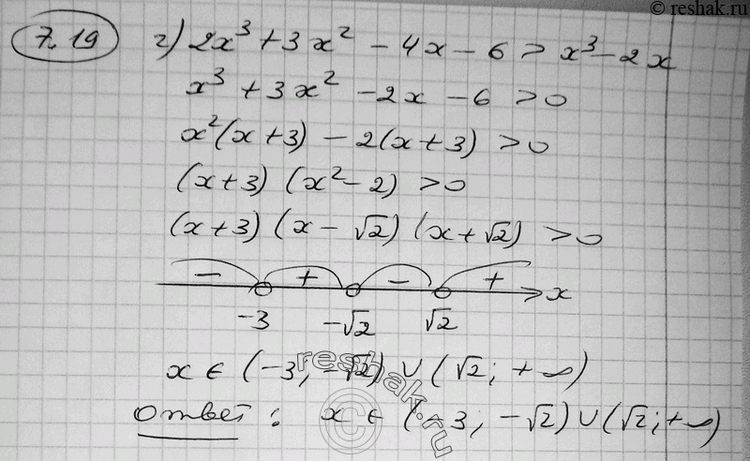 © reshak.ru
7.19 г) 2x³ + 3x² - 4x - 6 > x³ - 2x
x³ + 3x² - 2x - 6 > 0
x²(x + 3) - 2(x + 3) > 0
(x + 3) (x² - 2) > 0
(x + 3) (x - √2) (x + √2) > 0
- + - + x
-3 -√2 √2
x ∈ (-3; -√2) ∪ (√2; +∞)
Ответ: x ∈ (-3; -√2) ∪ (√2; +∞)
reshak.ru
©